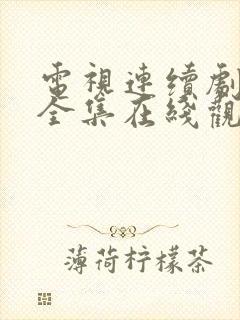 電視連續劇
全集在綫觀
薄荷柠檬茶